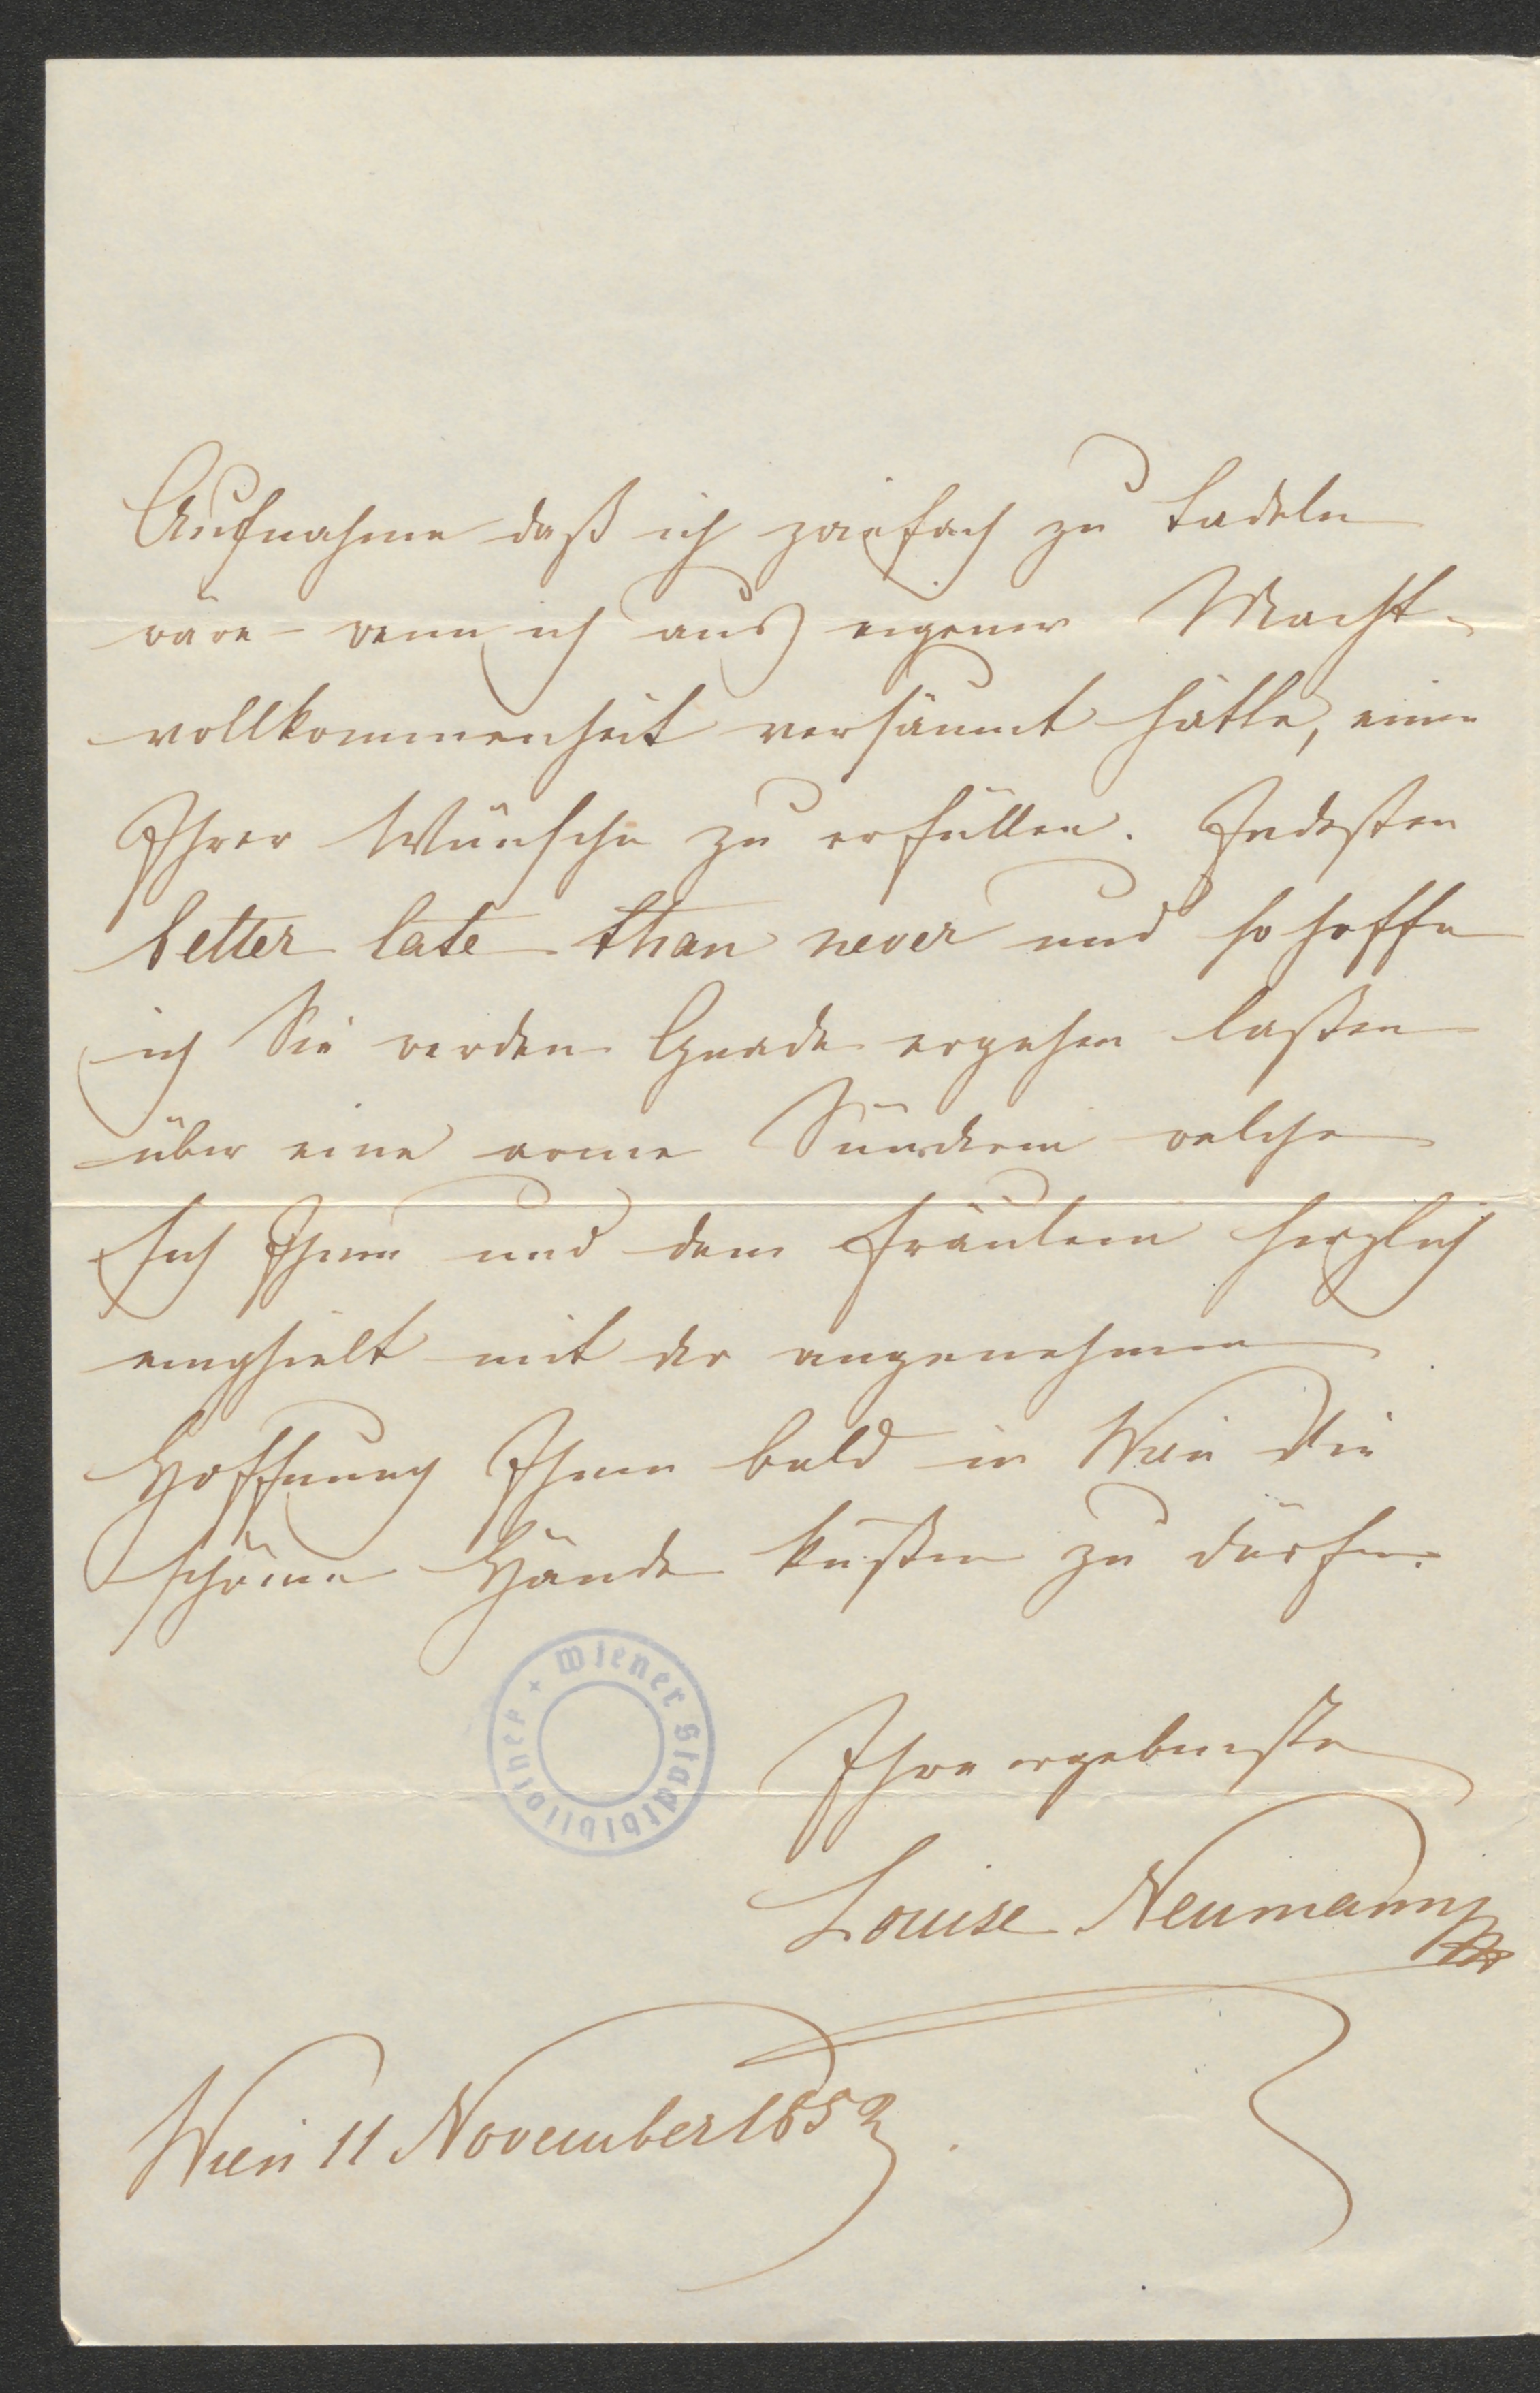 Aufnahme daß ich zweifach zu tadeln
wäre – wenn ich aus eigener Macht-
vollkommenheit versäumt hätte, einen
Ihrer Wünsche zu erfüllen. Indessen
better late than never und so hoffe
ich Sie werden Gnade ergehen lassen
über eine arme Sünderin welche
sich Ihnen und dem Fräulein herzlich
empfielt mit der angenehmen
Hoffnung Ihnen bald in Wien die
schönen Hände küssen zu dürfen.
Wiener Stadtbibliothek
Ihre ergebenste
Louise Neumann
Wien 11 November 1852